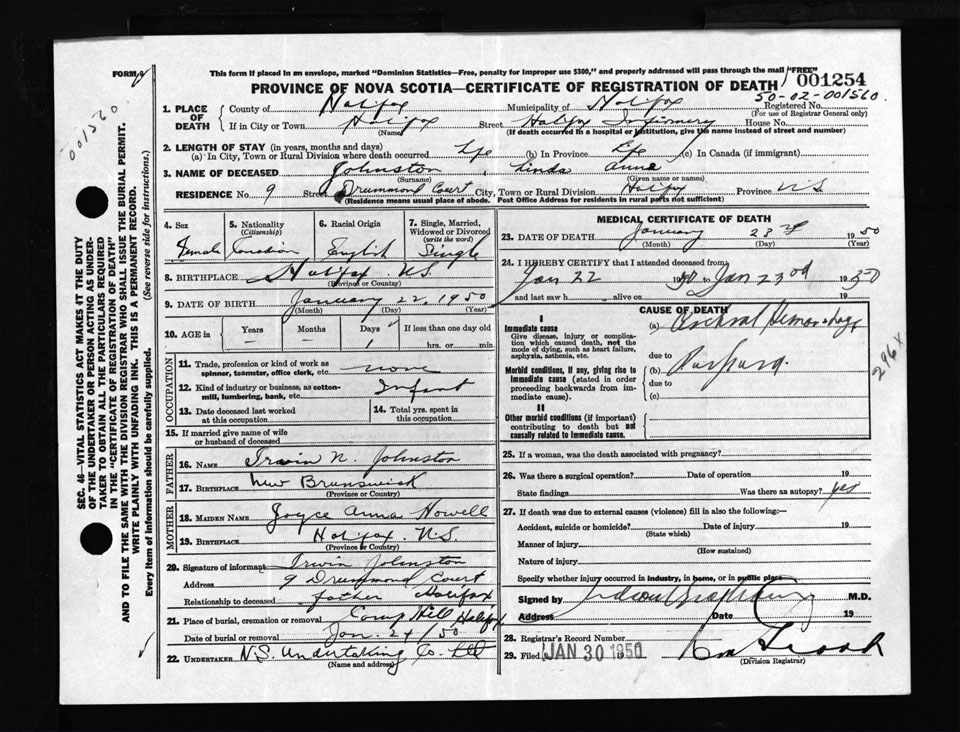 FORM 4
This form if placed in an envelope, marked "Dominion Statistics—Free, penalty for improper use $300," and properly addressed will pass through the mail "FREE"
PROVINCE OF NOVA SCOTIA—CERTIFICATE OF REGISTRATION OF DEATH
001254
50-02-001560
001560
1. PLACE OF DEATH
County of Halifax Municipality of Halifax Registered No.
(For use of Registrar General only)
If in City or Town Halifax Street Halifax Infirmary House No.
(Name) (If death occurred in a hospital or institution, give the name instead of street and number)
2. LENGTH OF STAY (in years, months and days)
(a) In City, Town or Rural Division where death occurred life (b) In Province life (c) In Canada (if immigrant)
3. NAME OF DECEASED Johnston Linda Anne
(Surname) (Given name or names)
RESIDENCE No. 9 Street Drummond Court City, Town or Rural Division Halifax Province N.S
(Residence means usual place of abode. Post Office Address for residents in rural parts not sufficient)
4. Sex Female
5. Nationality (Citizenship) Canadian
6. Racial Origin English
7. Single, Married, Widowed or Divorced (write the word) Single
8. BIRTHPLACE Halifax N.S.
(Province or Country)
9. DATE OF BIRTH January 22, 1950
(Month) (Day) (Year)
10. AGE in Years Months Days If less than one day old
— — 1 hrs. or min.
OCCUPATION
11. Trade, profession or kind of work as spinner, teamster, office clerk, etc. none
12. Kind of industry or business, as cotton-mill, lumbering, bank, etc. Infant
13. Date deceased last worked at this occupation
14. Total yrs. spent in this occupation
15. If married give name of wife or husband of deceased
FATHER
16. NAME Irwin N. Johnston
17. BIRTHPLACE New Brunswick
(Province or Country)
MOTHER
18. MAIDEN NAME Joyce Anna Howell
19. BIRTHPLACE Halifax N.S.
(Province or Country)
20. Signature of informant Irwin Johnston
Address 9 Drummond Court
Relationship to deceased father Halifax
21. Place of burial, cremation or removal Camp Hill Halifax
Date of burial or removal Jan. 24/50
22. UNDERTAKER N.S. Undertaking Co. Ltd
(Name and address)
MEDICAL CERTIFICATE OF DEATH
23. DATE OF DEATH January 23rd 1950
(Month) (Day) (Year)
24. I HEREBY CERTIFY that I attended deceased from
Jan 22 1950 to Jan 23rd 1950
and last saw h alive on 19
CAUSE OF DEATH
I
Immediate cause
Give disease, injury or complication which caused death, not the mode of dying, such as heart failure, asphyxia, asthenia, etc.
(a) Cerebral Hemorrhage
due to
Morbid conditions, if any, giving rise to immediate cause (stated in order proceeding backwards from immediate cause).
(b) Purpura.
due to
(c)
II
Other morbid conditions (if important) contributing to death but not causally related to immediate cause.
296X
25. If a woman, was the death associated with pregnancy?
26. Was there a surgical operation? Date of operation 19
State findings Was there an autopsy? yes
27. If death was due to external causes (violence) fill in also the following:—
Accident, suicide or homicide? Date of injury 19
(State which)
Manner of injury
(How sustained)
Nature of injury
Specify whether injury occurred in industry, in home, or in public place
Signed by M.D.
Address Date 19
28. Registrar's Record Number
29. Filed JAN 30 1950
(Division Registrar)
SEC. 46—VITAL STATISTICS ACT MAKES IT THE DUTY
OF THE UNDERTAKER OR PERSON ACTING AS UNDER-
TAKER TO OBTAIN ALL THE PARTICULARS REQUIRED
IN THE "CERTIFICATE OF REGISTRATION OF DEATH"
AND TO FILE THE SAME WITH THE DIVISION REGISTRAR WHO SHALL ISSUE THE BURIAL PERMIT.
WRITE PLAINLY WITH UNFADING INK. THIS IS A PERMANENT RECORD.
Every item of information should be carefully supplied. (See reverse side for instructions.)